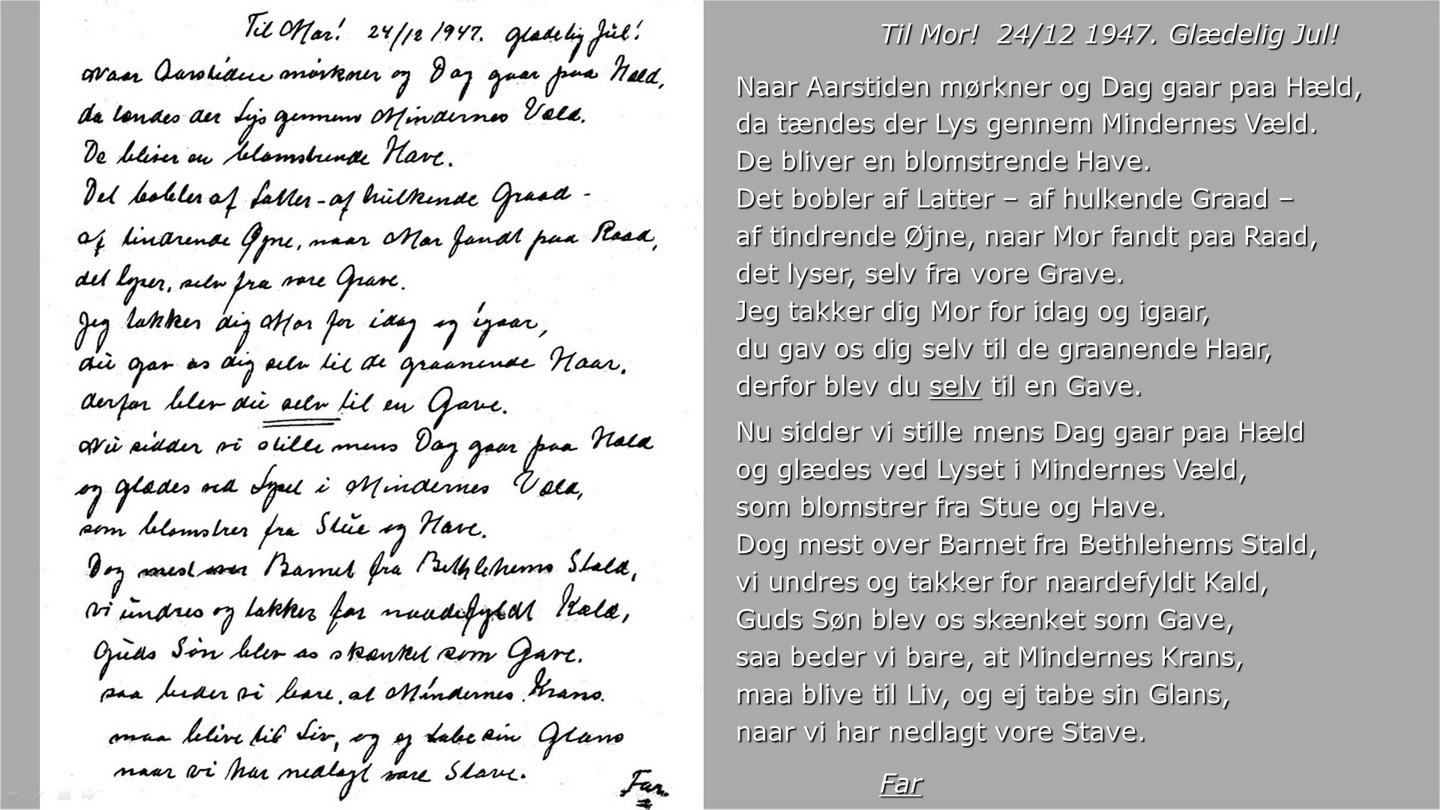 Til Mor! 24/12 1947. Glædelig Jul!
Naar Aarstiden mørkner og Dag gaar paa Hæld,
da tændes der Lys gennem Mindernes Væld.
De bliver en blomstrende Have.
Det bobler af Latter - af hulkende Graad -
af tindrende Øjne, naar Mor fandt paa Raad,
det lyser, selv fra vore Grave.
Jeg takker dig Mor for idag og igaar,
du gav os dig selv til de graanende Haar,
derfor blev du selv til en Gave.
Nu sidder vi stille mens Dag gaar paa Hæld
og glædes ved Lyset i Mindernes Væld,
som blomstrer fra Stue og Have.
Dog mest over Barnet fra Bethlehems Stald,
vi undres og takker for naadefyldt Kald,
Guds Søn blev os skænket som Gave.
saa beder vi bare, at Mindernes Krans.
maa blive til Liv, og ej tabe sin Glans
naar vi har nedlagt vore Stave.
Far.
Til Mor! 24/12 1947. Glædelig Jul!
Naar Aarstiden mørkner og Dag gaar paa Hæld,
da tændes der Lys gennem Mindernes Væld.
De bliver en blomstrende Have.
Det bobler af Latter – af hulkende Graad –
af tindrende Øjne, naar Mor fandt paa Raad,
det lyser, selv fra vore Grave.
Jeg takker dig Mor for idag og igaar,
du gav os dig selv til de graanende Haar,
derfor blev du selv til en Gave.
Nu sidder vi stille mens Dag gaar paa Hæld
og glædes ved Lyset i Mindernes Væld,
som blomstrer fra Stue og Have.
Dog mest over Barnet fra Bethlehems Stald,
vi undres og takker for naardefyldt Kald,
Guds Søn blev os skænket som Gave,
saa beder vi bare, at Mindernes Krans,
maa blive til Liv, og ej tabe sin Glans,
naar vi har nedlagt vore Stave.
Far